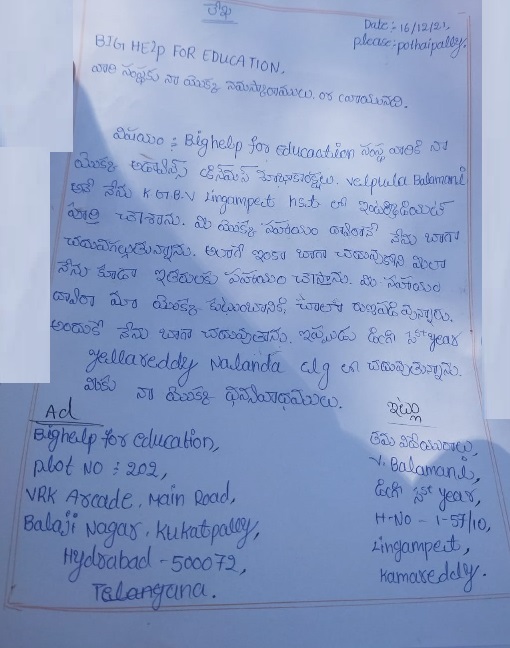 లేఖ
Date: 16/12/21,
please: pothaipally.
BIG HELP FOR EDUCATION.
వారి సంస్థకు నా యొక్క నమస్కారములు. or
విషయం : Bighelp for educaation సంస్థ వారికి నా
యొక్క అడ్వాన్స్ క్రిస్మస్ శుభాకాంక్షలు. Velpula Balamani
అనే నేను K G B.V Lingampeet లో ఇంటర్మీడియట్
పూర్తి చేశాను. మీ యొక్క సహాయం ద్వారానే నేను బాగా
చదువగల్గుతున్నాను. అలాగే ఇంకా బాగా చదువుకొని మీలా
నేను కూడా ఇతరులకు సహాయం చేస్తాను. మీ సహాయం
ద్వారా మా యొక్క కుటుంబానికి, చాలా రుణపడి వున్నారు.
అందుకే నేను బాగా చదువుతాను. ఇప్పుడు డిగ్రీ 1st year
yellareddy Nalanda clg లో చదువుతున్నాను.
మీకు నా యొక్క ధన్యవాధములు.
Ad
Bighelp for education,
plot NO : 202,
VRK Arcade, Main Road,
Balaji Nagar, Kukatpally,
Hydrabad - 500072,
Telangana.
ఇట్లు
తమ విదేయురాలు,
V. Balamani,
డిగ్రీ 1st year,
H-No - 1-57/10,
Lingampeet,
Kamareddy.